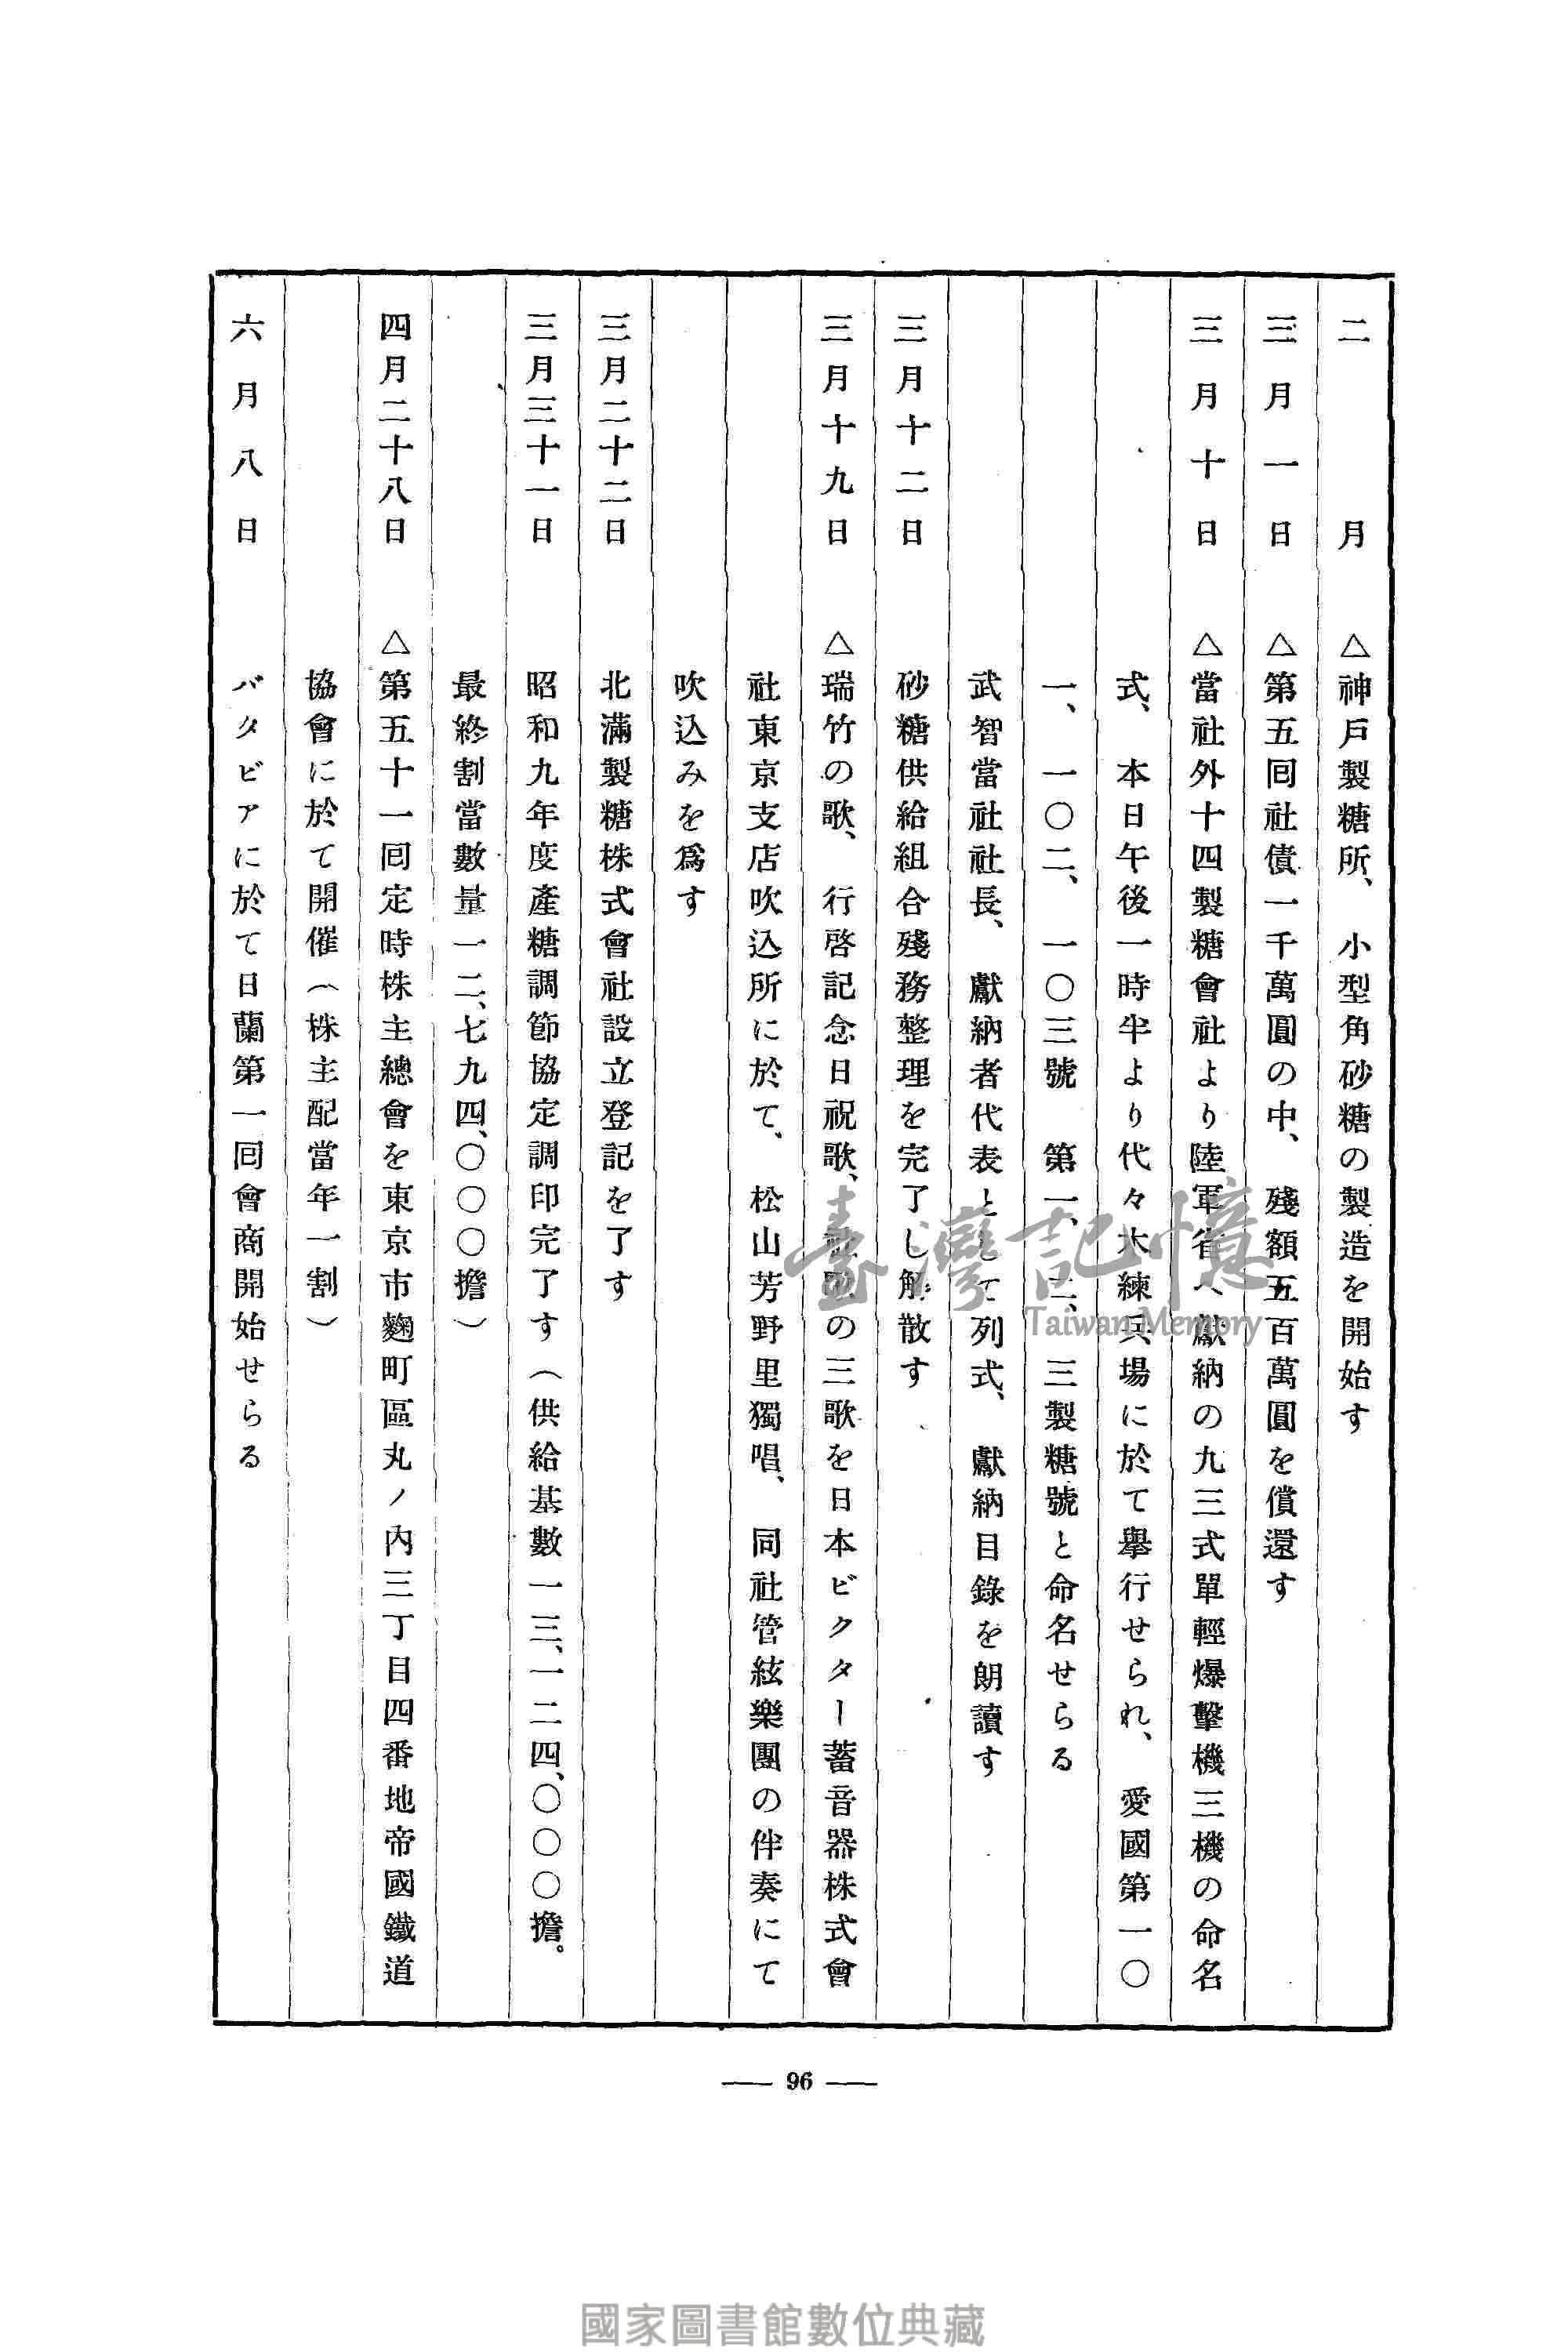 二月　△神戶製糖所、小型角砂糖の製造を開始す
三月一日　△第五囘社債一千萬圓の中、殘額五百萬圓を償還す
三月十日　△當社外十四製糖會社より陸軍省へ獻納の九三式單輕爆擊機三機の命名
式、本日午後一時半より代々木練兵場に於て擧行せられ、愛國第一〇
一、一〇二、一〇三號　第一、二、三製糖號と命名せらる
武智當社社長、獻納者代表として列式、獻納目錄を朗讀す
三月十二日　砂糖供給組合殘務整理を完了し解散す
三月十九日　△瑞竹の歌、行啓記念日祝歌、社歌の三歌を日本ビクター蓄音器株式會
社東京支店吹込所に於て、松山芳野里獨唱、同社管絃樂團の伴奏にて
吹込みを爲す
三月二十二日　北滿製糖株式會社設立登記を了す
三月三十一日　昭和九年度產糖調節協定調印完了す（供給基數一三、一二四、〇〇〇擔。
最終割當數量一二、七九四、〇〇〇擔）
四月二十八日　△第五十一囘定時株主總會を東京市麴町區丸ノ內三丁目四番地帝國鐵道
協會に於て開催（株主配當年一割）
六月八日　バタビアに於て日蘭第一囘會商開始せらる
— 96 —
臺灣記憶
Taiwan Memory
國家圖書館數位典藏